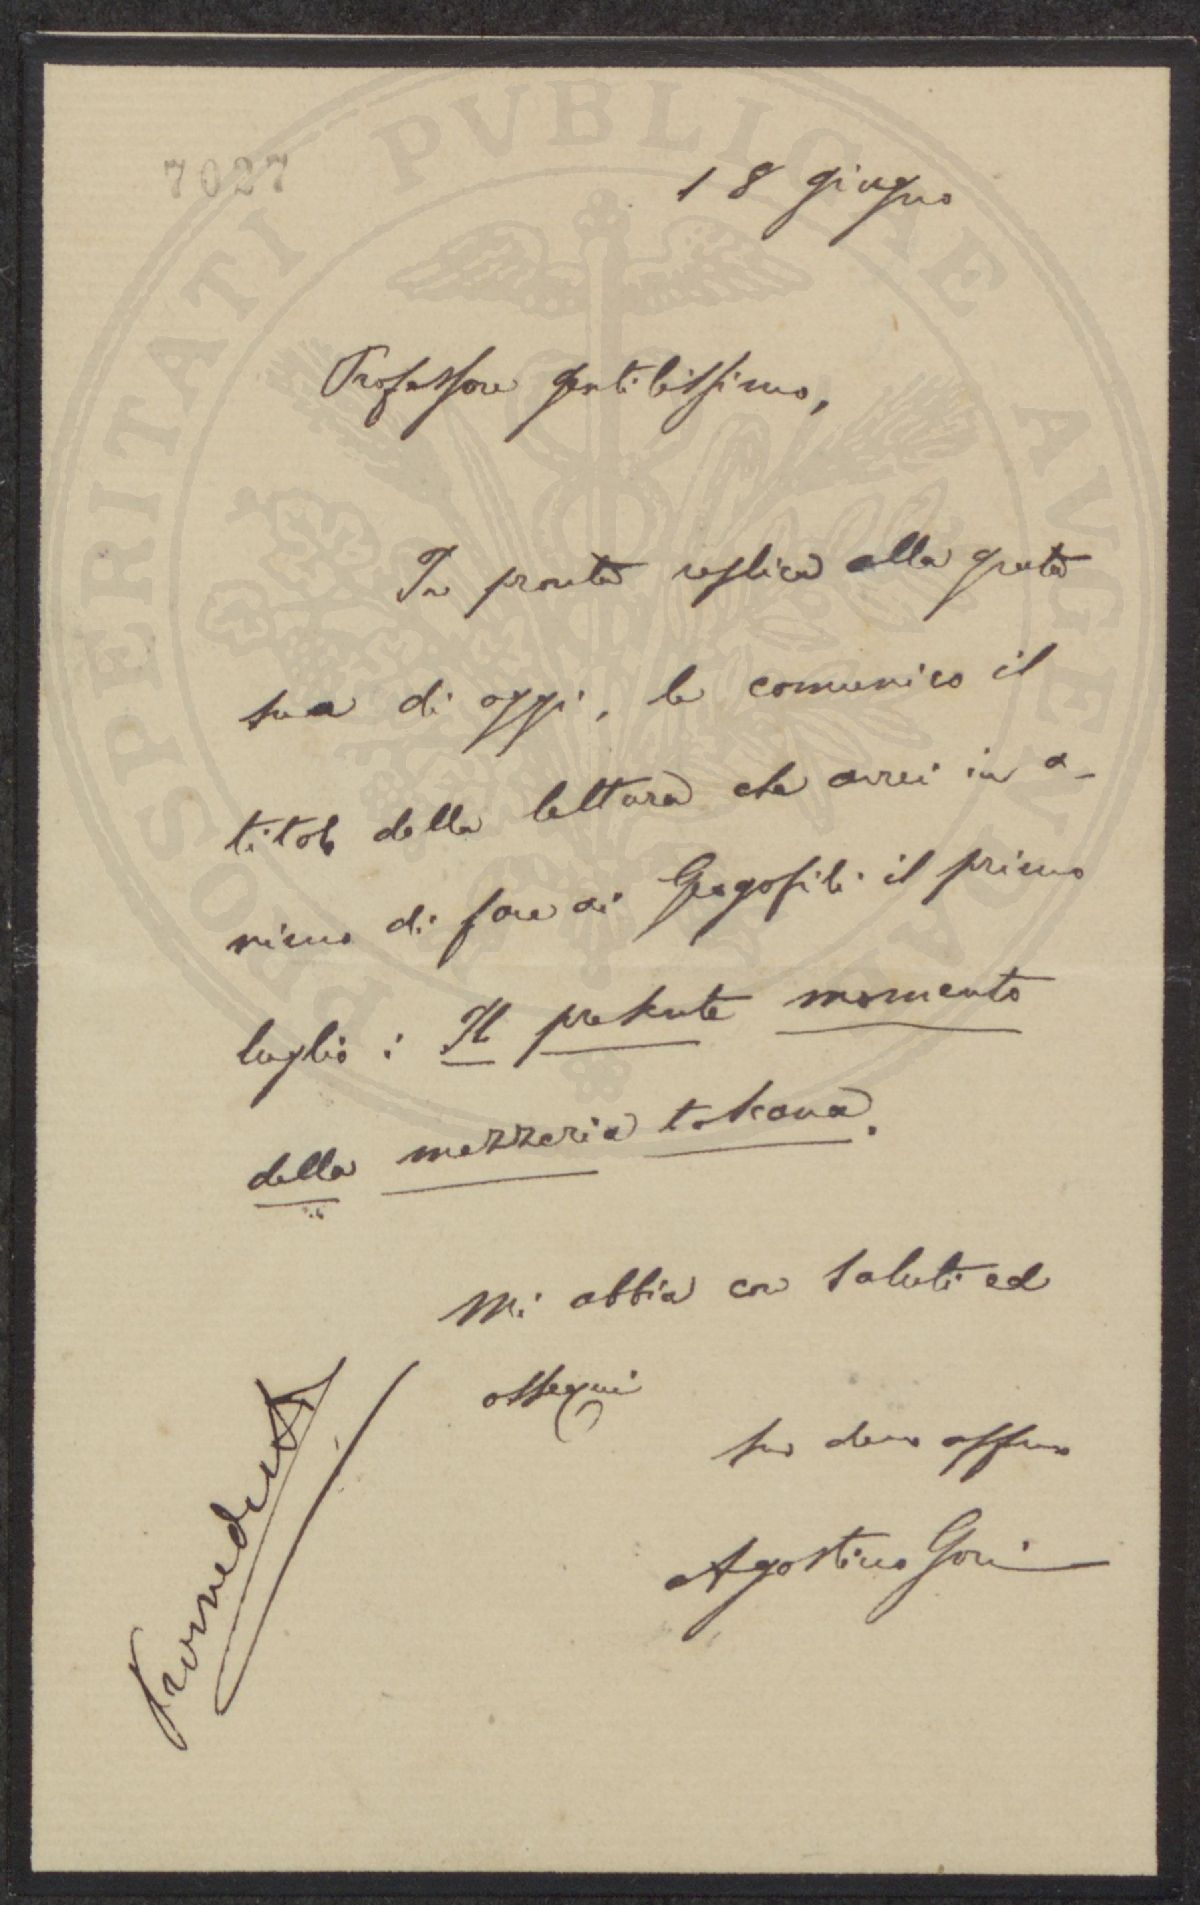 PROSPERITATI PVBLICAE AVGENDAE
7027
18 giugno
Professore gentilissimo,
In pronta replica alla grata
sua di oggi, le comunico il
titolo della lettura che avrei in a-
nimo di fare ai Georgofili il primo
luglio: Il presente momento
della mezzeria toscana.
Mi abbia con saluti ed
ossequi
suo devmo affmo
Agostino Gori